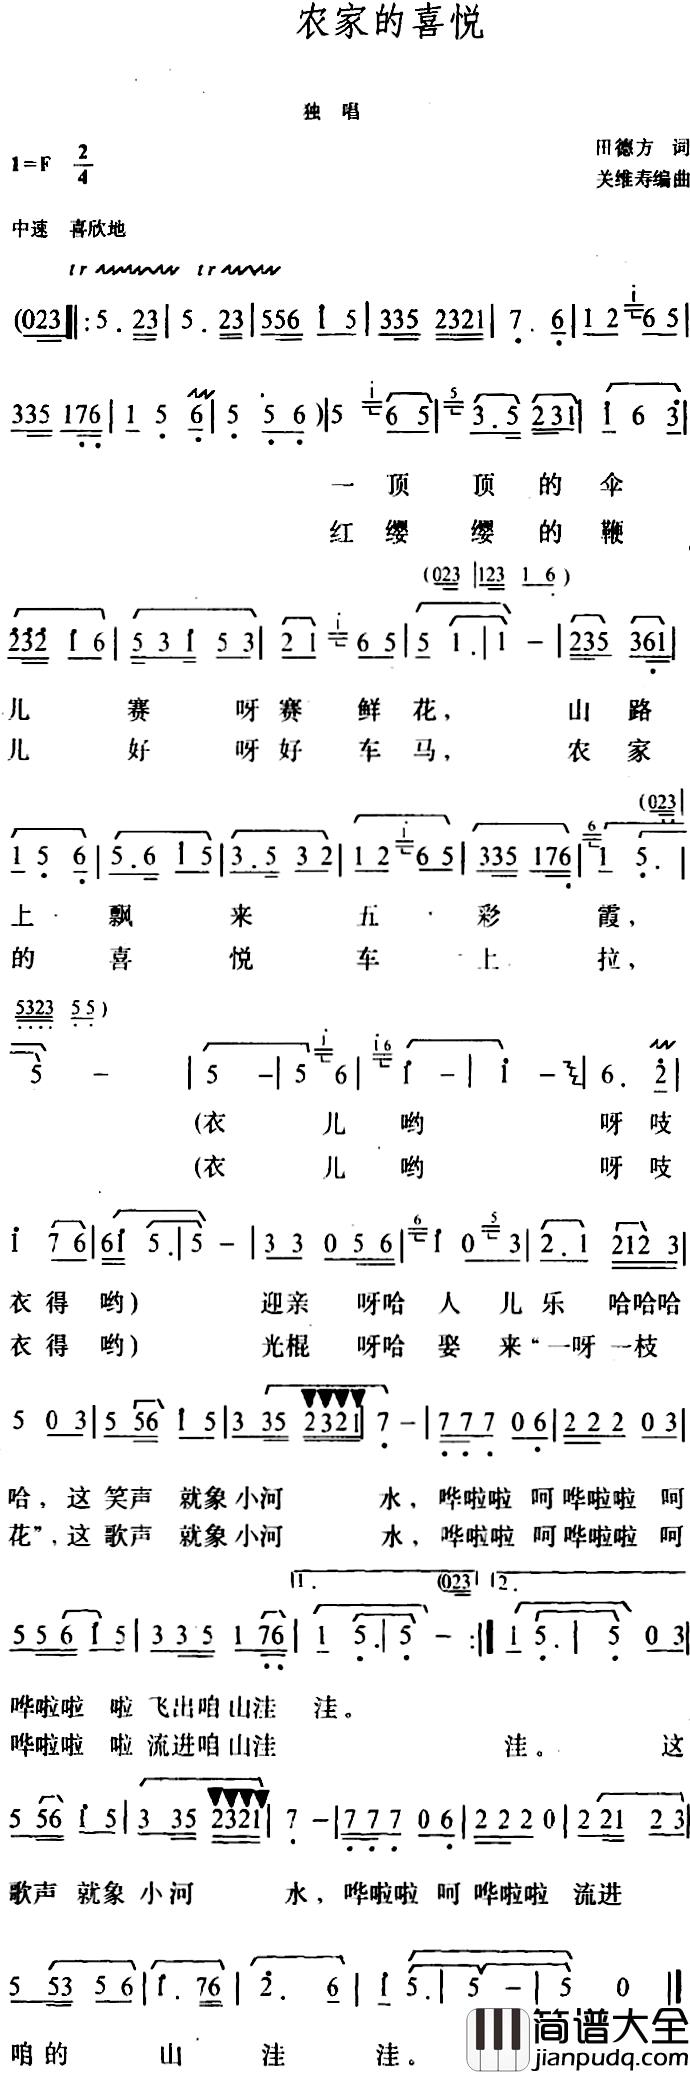 农家的喜悦
独 唱
1=F 2/4
田德方 词
关维寿编曲
中速 喜欣地
tr tr
(023 ‖: 5 . 23 | 5 . 23 | 556 1 5 | 335 2321 | 7 . 6 | 1 2 1 6 5 |
335 176 | 1 5 6 | 5 5 6 ) | 5 1 6 5 | 5 3.5 231 | 1 6 3 |
一 顶 顶 的 伞
红 缨 缨 的 鞭
(023 | 123 1 6 )
232 1 6 | 5 3 1 5 3 | 2 1 1 6 5 | 5 1. | 1 - | 235 361 |
儿 赛 呀 赛 鲜 花, 山 路
儿 好 呀 好 车 马, 农 家
(023
1 5 6 | 5.6 1 5 | 3.5 3 2 | 1 2 1 6 5 | 335 176 | 6 1 5. |
上 飘 来 五 彩 霞,
的 喜 悦 车 上 拉,
5323 5 5 )
5 - | 5 - | 5 1 6 | 1 6 1 - | 1 - | 6 . 2 |
(衣 儿 哟 呀 吱
(衣 儿 哟 呀 吱
1 7 6 | 61 5. | 5 - | 3 3 0 5 6 | 6 1 0 5 3 | 2. 1 212 3 |
衣 得 哟) 迎亲 呀哈 人 儿 乐 哈哈哈
衣 得 哟) 光棍 呀哈 娶 来 “一呀 一枝
5 0 3 | 5 56 1 5 | 3 35 2321 | 7 - | 7 7 7 0 6 | 2 2 2 0 3 |
哈, 这 笑声 就象 小河 水, 哗啦啦 呵 哗啦啦 呵
花”, 这 歌声 就象 小河 水, 哗啦啦 呵 哗啦啦 呵
1. (023 2.
5 5 6 1 5 | 3 3 5 1 76 | 1 5. | 5 - :‖ 1 5. | 5 0 3 |
哗啦啦 啦 飞出咱 山洼 洼。
哗啦啦 啦 流进咱 山洼 洼。 这
5 56 1 5 | 3 35 2321 | 7 - | 7 7 7 0 6 | 2 2 2 0 | 2 21 2 3 |
歌声 就象 小河 水, 哗啦啦 呵 哗啦啦 流进
5 53 5 6 | 1. 76 | 2. 6 | 1 5. | 5 - | 5 0 ‖
咱的 山 洼 洼。
简谱大全
jianpudq.com